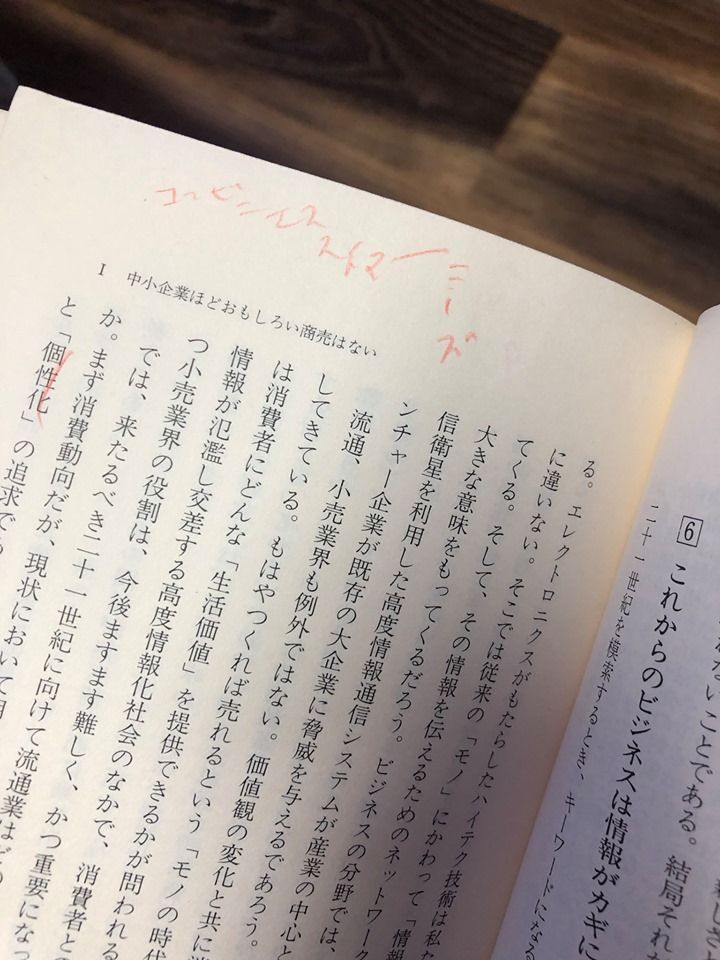 れないことである。結局それ
6 これからのビジネスは情報がカギに
二十一世紀を模索するとき、キーワードになる
コンビニエス
ストアー
ニーズ
I 中小企業ほどおもしろい商売はない
る。エレクトロニクスがもたらしたハイテク技術は私た
に違いない。そこでは従来の「モノ」にかわって「情報
てくる。そして、その情報を伝えるためのネットワーク
大きな意味をもってくるだろう。ビジネスの分野では、
信衛星を利用した高度情報通信システムが産業の中心と
ンチャー企業が既存の大企業に脅威を与えるであろう。
流通、小売業界も例外ではない。価値観の変化と共に消
してきている。もはやつくれば売れるという「モノの時代
は消費者にどんな「生活価値」を提供できるかが問われる
情報が氾濫し交差する高度情報化社会のなかで、消費者との
つ小売業界の役割は、今後ますます難しく、かつ重要になっ
では、来たるべき二十一世紀に向けて流通業はどの
か。まず消費動向だが、現状において
と「個性化」の追求であ